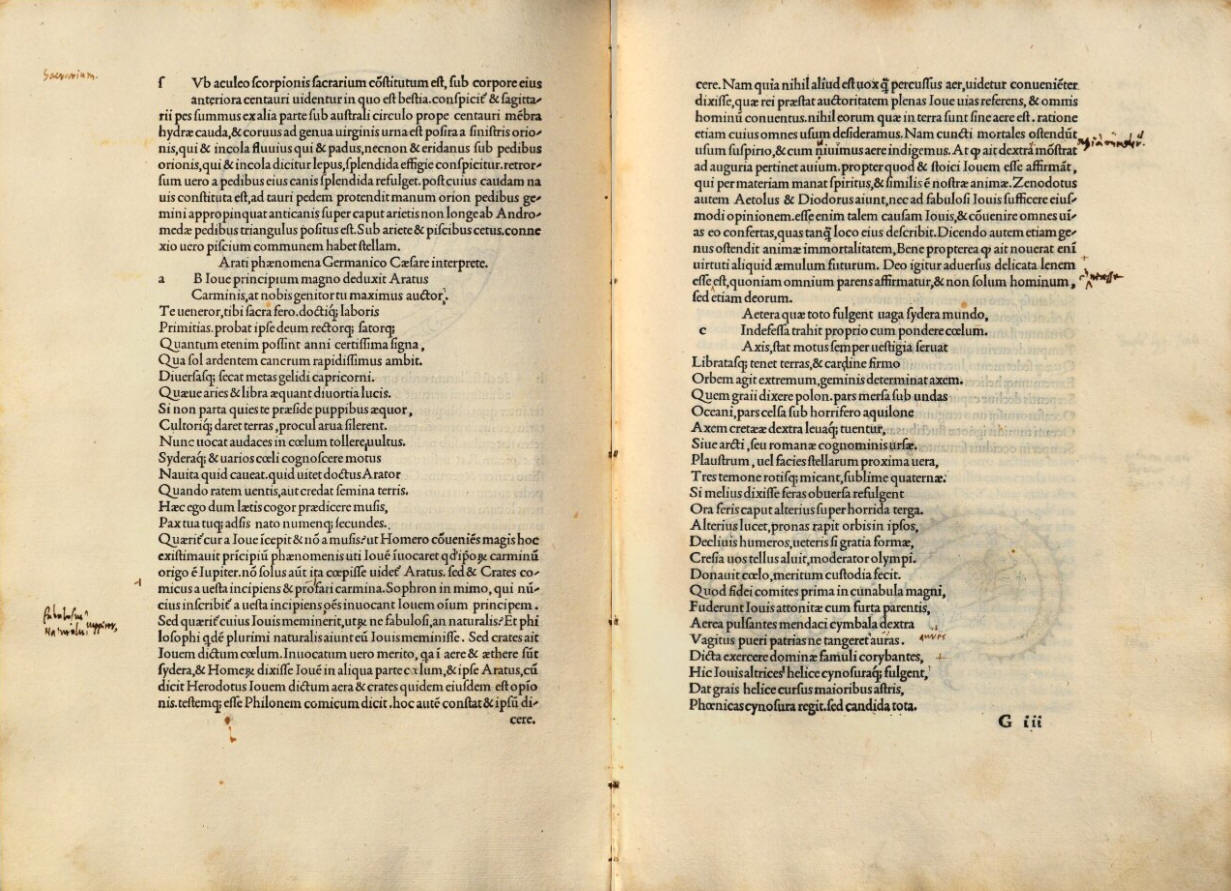 Sacrarium.
ſ Vb aculeo ſcorpionis ſacrarium cõſtitutum eſt, ſub corpore eius
anteriora centauri uidentur in quo eſt beſtia.conſpicit᷒ & ſagitta-
rii pes ſummus ex alia parte ſub auſtrali circulo prope centauri mẽbra
hydræ cauda,& coruus ad genua uirginis urna eſt poſita a ſiniſtris orio-
nis,qui & incola fluuius qui & padus,necnon & eridanus ſub pedibus
orionis,qui & incola dicitur lepus,ſplendida effigie conſpicitur.retror-
ſum uero a pedibus eius canis ſplendida refulget.poſt cuius caudam na
uis conſtituta eſt,ad tauri pedem protendit manum orion pedibus ge-
mini appropinquat anticanis ſuper caput arietis non longe ab Andro-
medæ pedibus triangulus poſitus eſt.Sub ariete & piſcibus cetus.conne
xio uero piſcium communem habet ſtellam.
Arati phænomena Germanico Cæſare interprete.
a B Ioue principium magno deduxit Aratus
Carminis,at nobis genitor tu maximus auctor.
Te ueneror,tibi ſacra fero.doctiqȝ laboris
Primitias.probat ipſe deum rectorqȝ ſatorqȝ
Quantum etenim poſſint anni certiſſima ſigna,
Qua ſol ardentem cancrum rapidiſſimus ambit.
Diuerſaſqȝ ſecat metas gelidi capricorni.
Quæue aries & libra æquant diuortia lucis.
Si non parta quies te præſide puppibus æquor,
Cultoriqȝ daret terras,procul arua ſilerent.
Nunc uocat audaces in cœlum tollere,uultus.
Syderaqȝ & uarios cœli cognoſcere motus
Nauita quid caueat.quid uitet doctus Arator
Quando ratem uentis,aut credat ſemina terris.
Hæc ego dum lætis cogor prædicere muſis,
Pax tua tuqȝ adſis nato numenqȝ ſecundes.
Quærit᷒ cur a Ioue ĩcepit & nõ a muſis?ut Homero cõueniẽs magis hoc
exiſtimauit prĩcipiũ phænomenis uti Iouẽ ĩuocaret qd ipoꝝ carminũ
origo ẽ Iupiter.nõ ſolus aũt ita cœpiſſe uidet᷒ Aratus. ſed & Crates co-
micus a ueſta incipiens & profari carmina.Sophron in mimo, qui nũ-
cius inſcribit᷒ a ueſta incipiens oẽs inuocant Iouem oĩum principem.
Sed quærit᷒ cuius Iouis meminerit,utꝝ ne fabuloſi,an naturalis?Et phi
loſophi qdẽ plurimi naturalis aiunt eũ Iouis meminiſſe. Sed crates ait
Iouem dictum cœlum.Inuocatum uero merito, qa ĩ aere & æthere ſũt
ſydera,& Homeꝝ dixiſſe Iouẽ in aliqua parte cœlum,& ipſe Aratus,cũ
dicit Herodotus Iouem dictum aera & crates quidem eiuſdem eſt opio
nis.teſtemqȝ eſſe Philonem comicum dicit.hoc autẽ conſtat & ipſũ di-
cere.
cere.Nam quia nihil aliud eſt uox q̃ percuſſus aer,uidetur conueniẽter
dixiſſe,quæ rei præſtat auctoritatem plenas Ioue uias referens, & omnis
hominũ conuentus.nihil eorum quæ in terra ſunt ſine aere eſt. ratione
etiam cuius omnes uſum deſideramus.Nam cuncti mortales oſtendũt
uſum ſuſpirio,& cum uiuimus aere indigemus. At ꝙ ait dextra mõſtrat
ad auguria pertinet auium.propter quod & ſtoici Iouem eſſe affirmãt,
qui per materiam manat ſpiritus,& ſimilis ẽ noſtræ animæ. Zenodotus
autem Aetolus & Diodorus aiunt,nec ad fabuloſi Iouis ſufficere eiuſ-
modi opinionem.eſſe enim talem cauſam Iouis,& cõuenire omnes ui-
as eo confertas,quas tanqȝ loco eius deſcribit.Dicendo autem etiam ge-
nus oſtendit animæ immortalitatem,Bene propterea ꝙ ait nouerat enĩ
uirtuti aliquid æmulum futurum. Deo igitur aduerſus delicata lenem
eſſe eſt,quoniam omnium parens affirmatur,& non ſolum hominum,
ſed etiam deorum.
Aetera quæ toto fulgent uaga ſydera mundo,
c Indefeſſa trahit proprio cum pondere cœlum.
Axis,ſtat motus ſemper ueſtigia ſeruat
Librataſqȝ tenet terras,& cardine firmo
Orbem agit extremum,geminis determinat axem.
Quem graii dixere polon.pars merſa ſub undas
Oceani,pars celſa ſub horrifero aquilone
Axem cretææ dextra leuaqȝ tuentur,
Siue arcti,ſeu romanæ cognominis urſæ.
Plauſtrum, uel facies ſtellarum proxima uera,
Tres temone rotiſqȝ micant,ſublime quaternæ.
Si melius dixiſſe feras obuerſa refulgent
Ora feris caput alterius ſuper horrida terga.
Alterius lucet,pronas rapit orbis in ipſos,
Decliuis humeros,ueteris ſi gratia formæ,
Creſia uos tellus aluit,moderator olympi.
Donauit cœlo,meritum cuſtodia fecit.
Quod fidei comites prima in cunabula magni,
Fuderunt Iouis attonitæ cum furta parentis,
Aerea pulſantes mendaci cymbala dextra
Vagitus pueri patrias ne tangeret auras.
aures
Dicta exercere dominæ famuli corybantes,
Hic Iouis altrices helice cynoſuraqȝ fulgent,
Dat grais helice curſus maioribus aſtris,
Phœnicas cynoſura regit.ſed candida tota.
G iii